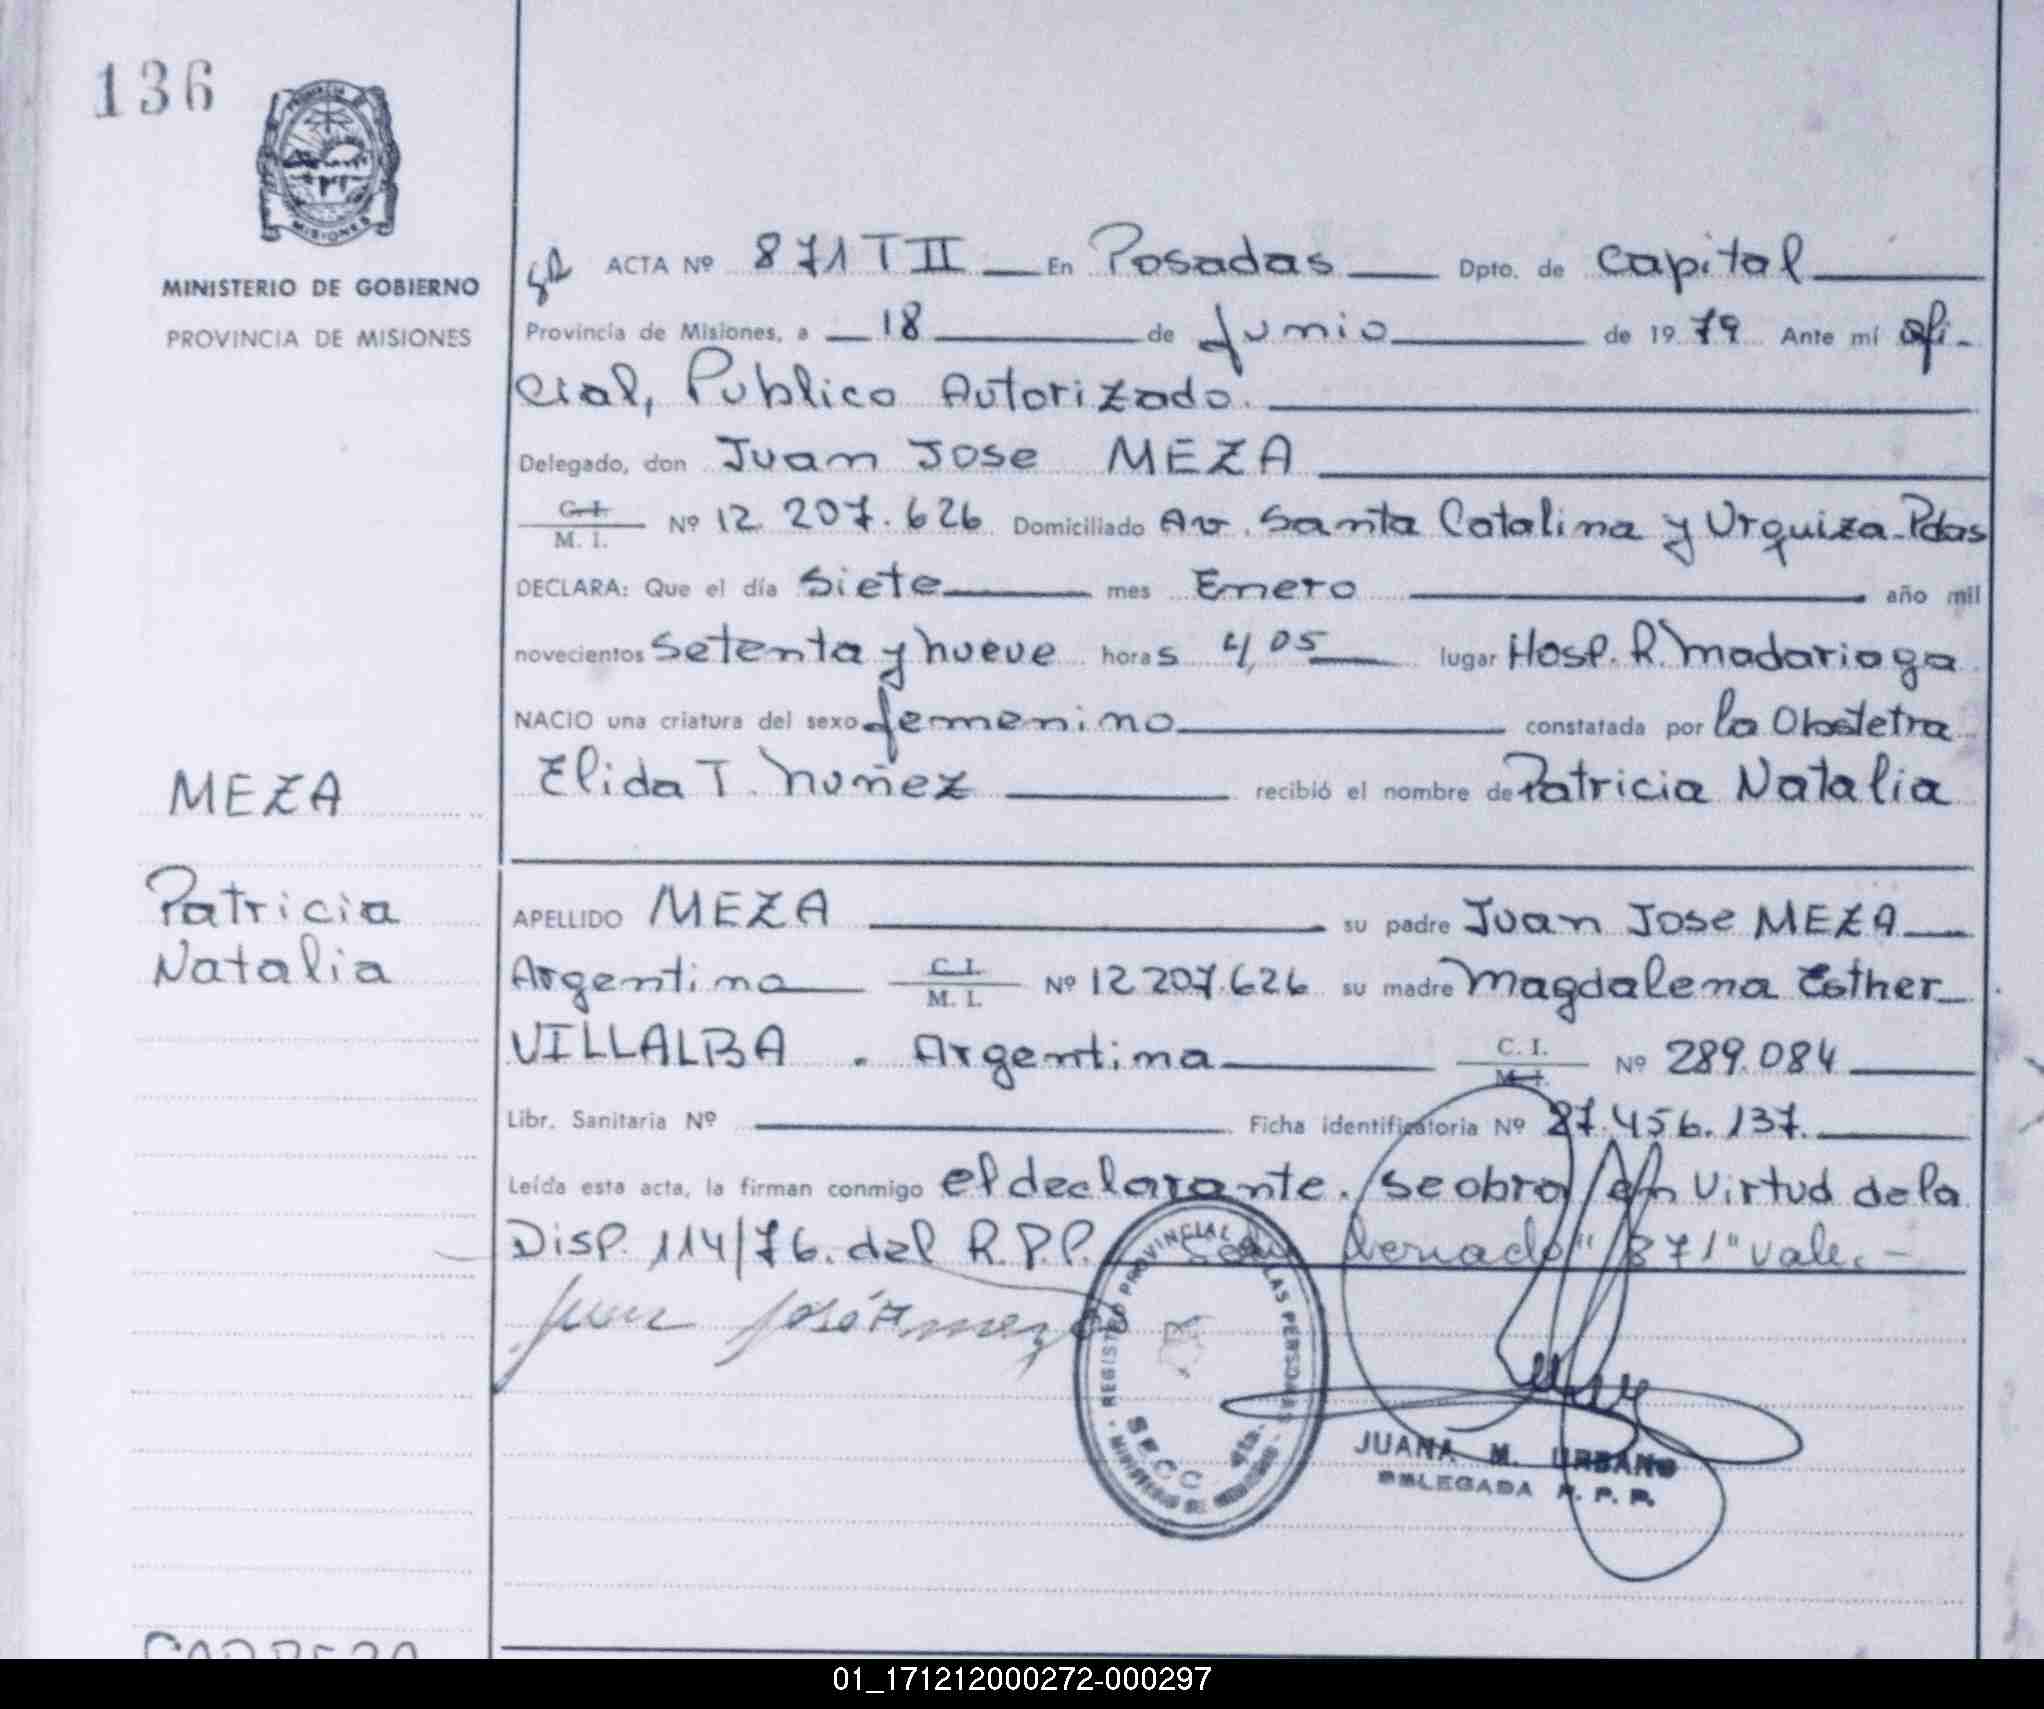 136
PROVINCIA DE
MISIONES
MINISTERIO DE GOBIERNO
PROVINCIA DE MISIONES
ACTA Nº 871 T II En Posadas Dpto. de Capital
Provincia de Misiones, a 18 de junio de 1979 Ante mí ofi-
cial, Publico Autorizado.
Delegado, don Juan Jose MEZA
C. I.
M. I. Nº 12.207.626 Domiciliado Av. Santa Catalina y Urquiza-Pdas
DECLARA: Que el día siete mes Enero año mil
novecientos setenta y nueve horas 4,05 lugar Hosp. R. Madariaga
NACIO una criatura del sexo femenino constatada por la Obstetra
Elida T. Nuñez recibió el nombre de Patricia Natalia
MEZA
Patricia
Natalia
APELLIDO MEZA su padre Juan Jose MEZA
Argentina C. I. M. I. Nº 12207.626 su madre Magdalena Esther
VILLALBA . Argentina C. I. M. I. Nº 289.084
Libr. Sanitaria Nº Ficha identificatoria Nº 27.456.137.
Leída esta acta, la firman conmigo el declarante. se obro en Virtud de la
Disp. 114/76. del R.P.P. "871" vale.-
Juan José Meza
REGISTRO PROVINCIAL DE LAS PERSONAS
SECC 4ta.
MINISTERIO DE
JUANA M. URBANO
DELEGADA R. P. P.
01_171212000272-000297